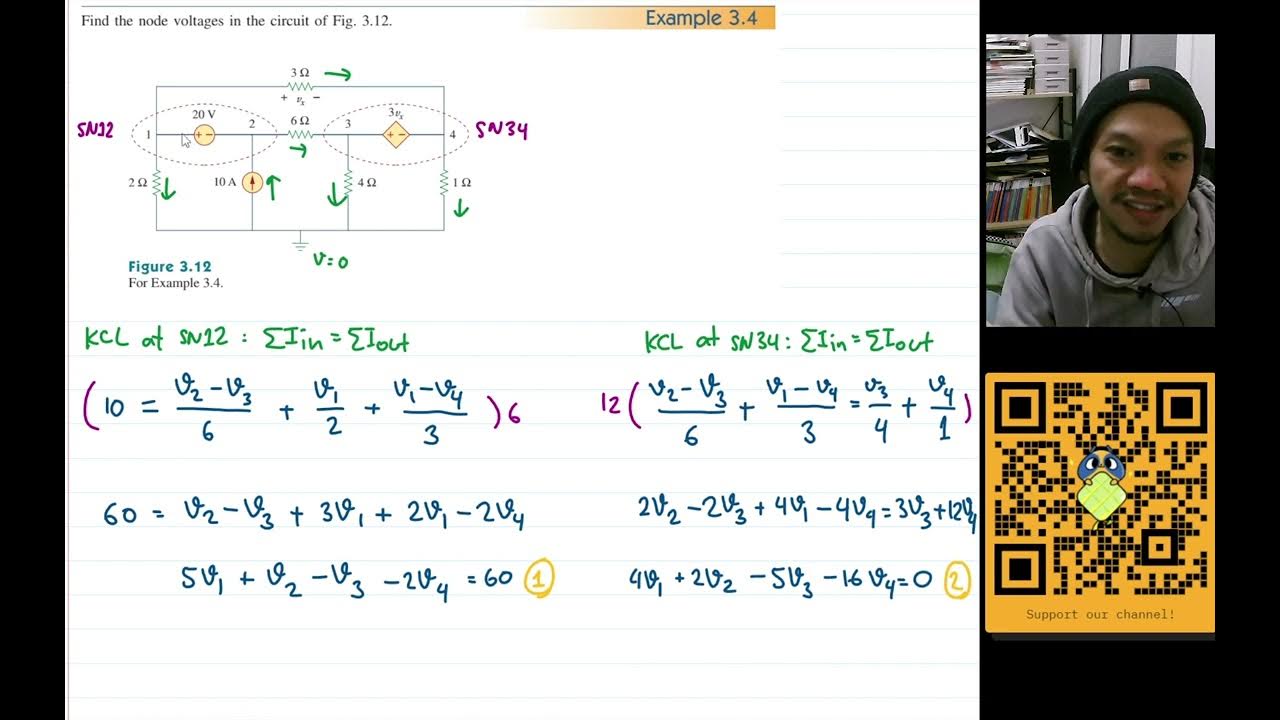 Find the node voltages in the circuit of Fig. 3.12.
Example 3.4
3 Ω
+ vₓ −
SN12
20 V
6 Ω
3vₓ
SN34
1
+ −
2
3
+ −
4
2 Ω
10 A
4 Ω
1 Ω
v=0
Figure 3.12
For Example 3.4.
KCL at SN12 : ΣIin = ΣIout
(10 = (v₂ − v₃)/6 + v₁/2 + (v₁ − v₄)/3) 6
60 = v₂ − v₃ + 3v₁ + 2v₁ − 2v₄
5v₁ + v₂ − v₃ − 2v₄ = 60 1
KCL at SN34 : ΣIin = ΣIout
12 ((v₂ − v₃)/6 + (v₁ − v₄)/3 = v₃/4 + v₄/1)
2v₂ − 2v₃ + 4v₁ − 4v₄ = 3v₃ + 12v₄
4v₁ + 2v₂ − 5v₃ − 16v₄ = 0 2
Support our channel!